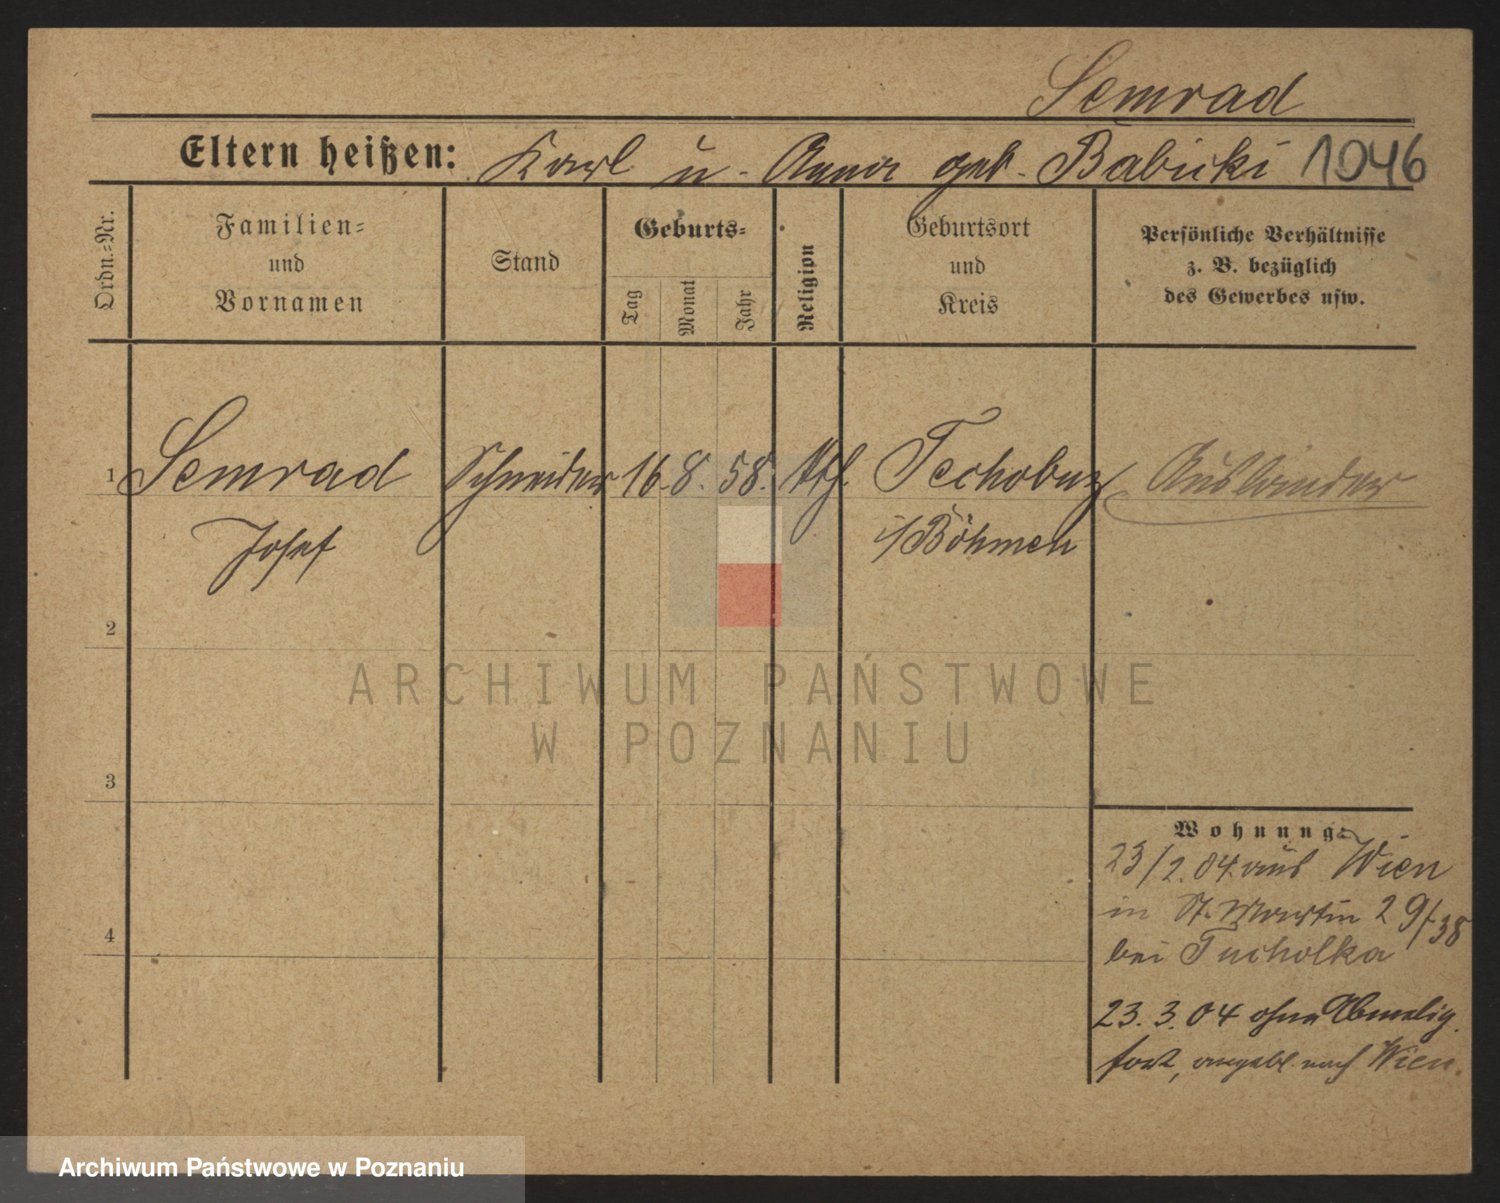 Semrad
Eltern heißen: Karl u. Anna geb. Babicki 1046
Ordn.-Nr.
Familien-
und
Vornamen
Stand
Geburts-
Tag
Monat
Jahr
Religion
Geburtsort
und
Kreis
Persönliche Verhältnisse
z. B. bezüglich
des Gewerbes usw.
1 Semrad Schneider 16. 8. 58. kth. Techobuz Ausländer
Josef i/Böhmen
2
3
4
Wohnung:
23/2. 04. aus Wien
in St. Martin 29/38
bei Tucholka
23. 3. 04 ohne Abmeldg.
fort, angebl. nach Wien.
ARCHIWUM PAŃSTWOWE
W POZNANIU
Archiwum Państwowe w Poznaniu